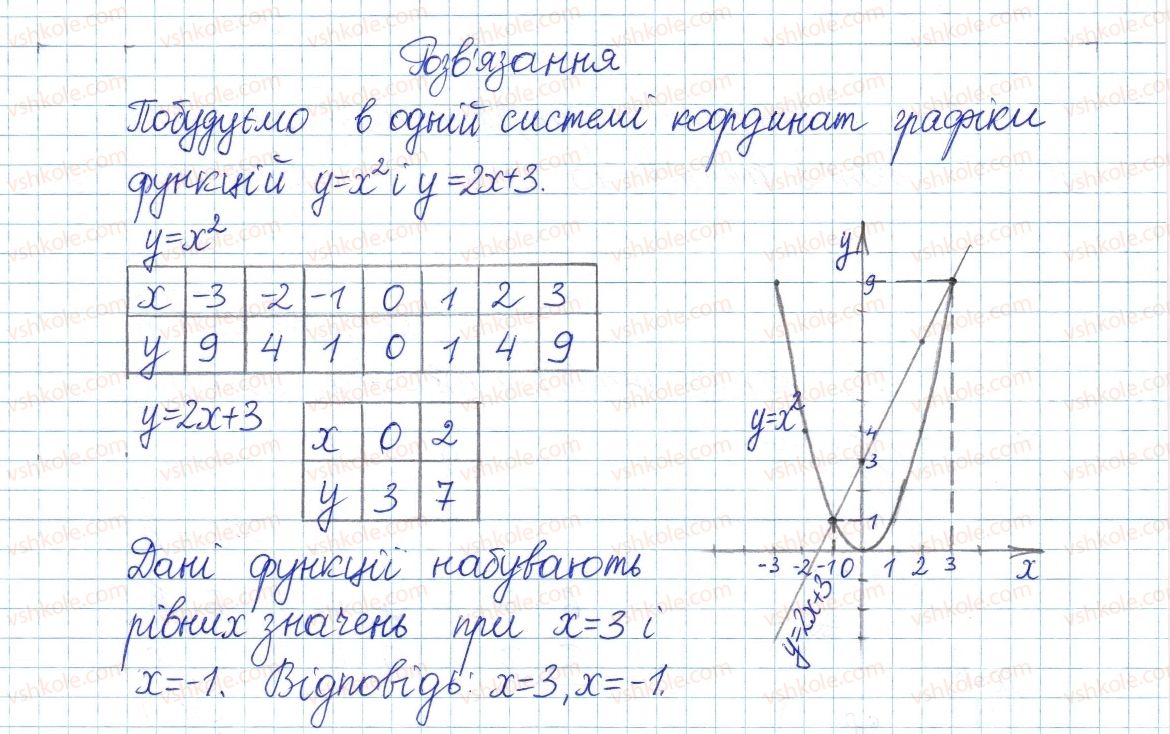 Розв'язання
Побудуємо в одній системі координат графіки
функцій y=x² і y=2x+3.
y=x²
x -3 -2 -1 0 1 2 3
y 9 4 1 0 1 4 9
y=2x+3
x 0 2
y 3 7
Дані функції набувають
рівних значень при x=3 і
x=-1. Відповідь: x=3, x=-1.
y
9
y=x²
4
3
1
-3 -2 -1 0 1 2 3 x
y=2x+3
vshkole.com